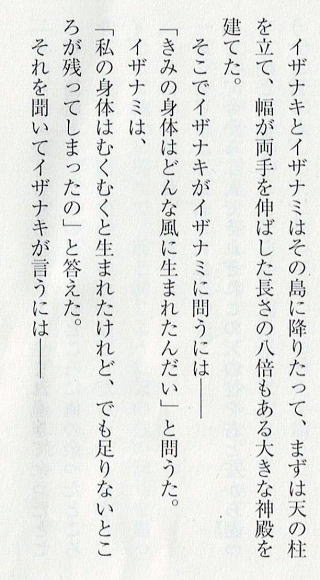 イザナキとイザナミはその島に降りたって、まずは天の柱
を立て、幅が両手を伸ばした長さの八倍もある大きな神殿を
建てた。
そこでイザナキがイザナミに問うには――
「きみの身体はどんな風に生まれたんだい」と問うた。
イザナミは、
「私の身体はむくむくと生まれたけれど、でも足りないとこ
ろが残ってしまったの」と答えた。
それを聞いてイザナキが言うには――